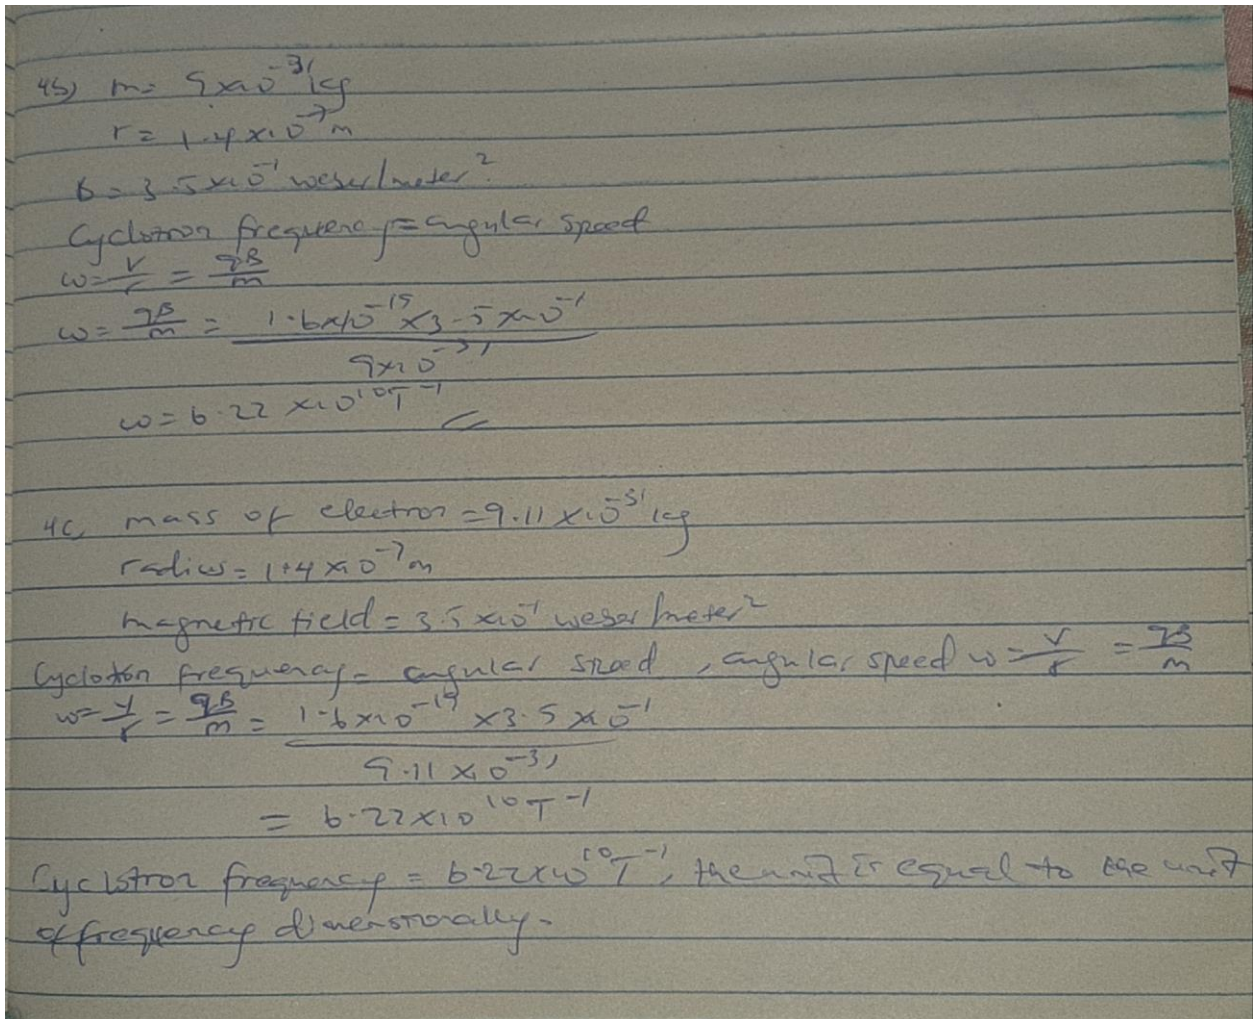 4b) m= 9x10⁻³¹kg
r = 1.4x10⁻⁷m
B = 3.5x10⁻¹ weser/meter².
Cyclotron frequency = angular speed
ω = v/r = qB/m
ω = qB/m = 1.6x10⁻¹⁹ x 3.5x10⁻¹ / 9x10⁻³¹
ω = 6.22 x10¹⁰T⁻¹
4c, mass of electron = 9.11 x10⁻³¹kg
radius = 1.4 x10⁻⁷m
magnetic field = 3.5x10⁻¹ weser/meter²
Cyclotron frequency = angular speed, angular speed ω = v/r = qB/m
ω = v/r = qB/m = 1.6x10⁻¹⁹ x3.5x10⁻¹ / 9.11 x10⁻³¹
= 6.22x10¹⁰T⁻¹
Cyclotron frequency = 6.22x10¹⁰T⁻¹, the unit is equal to the unit
of frequency dimensionally.